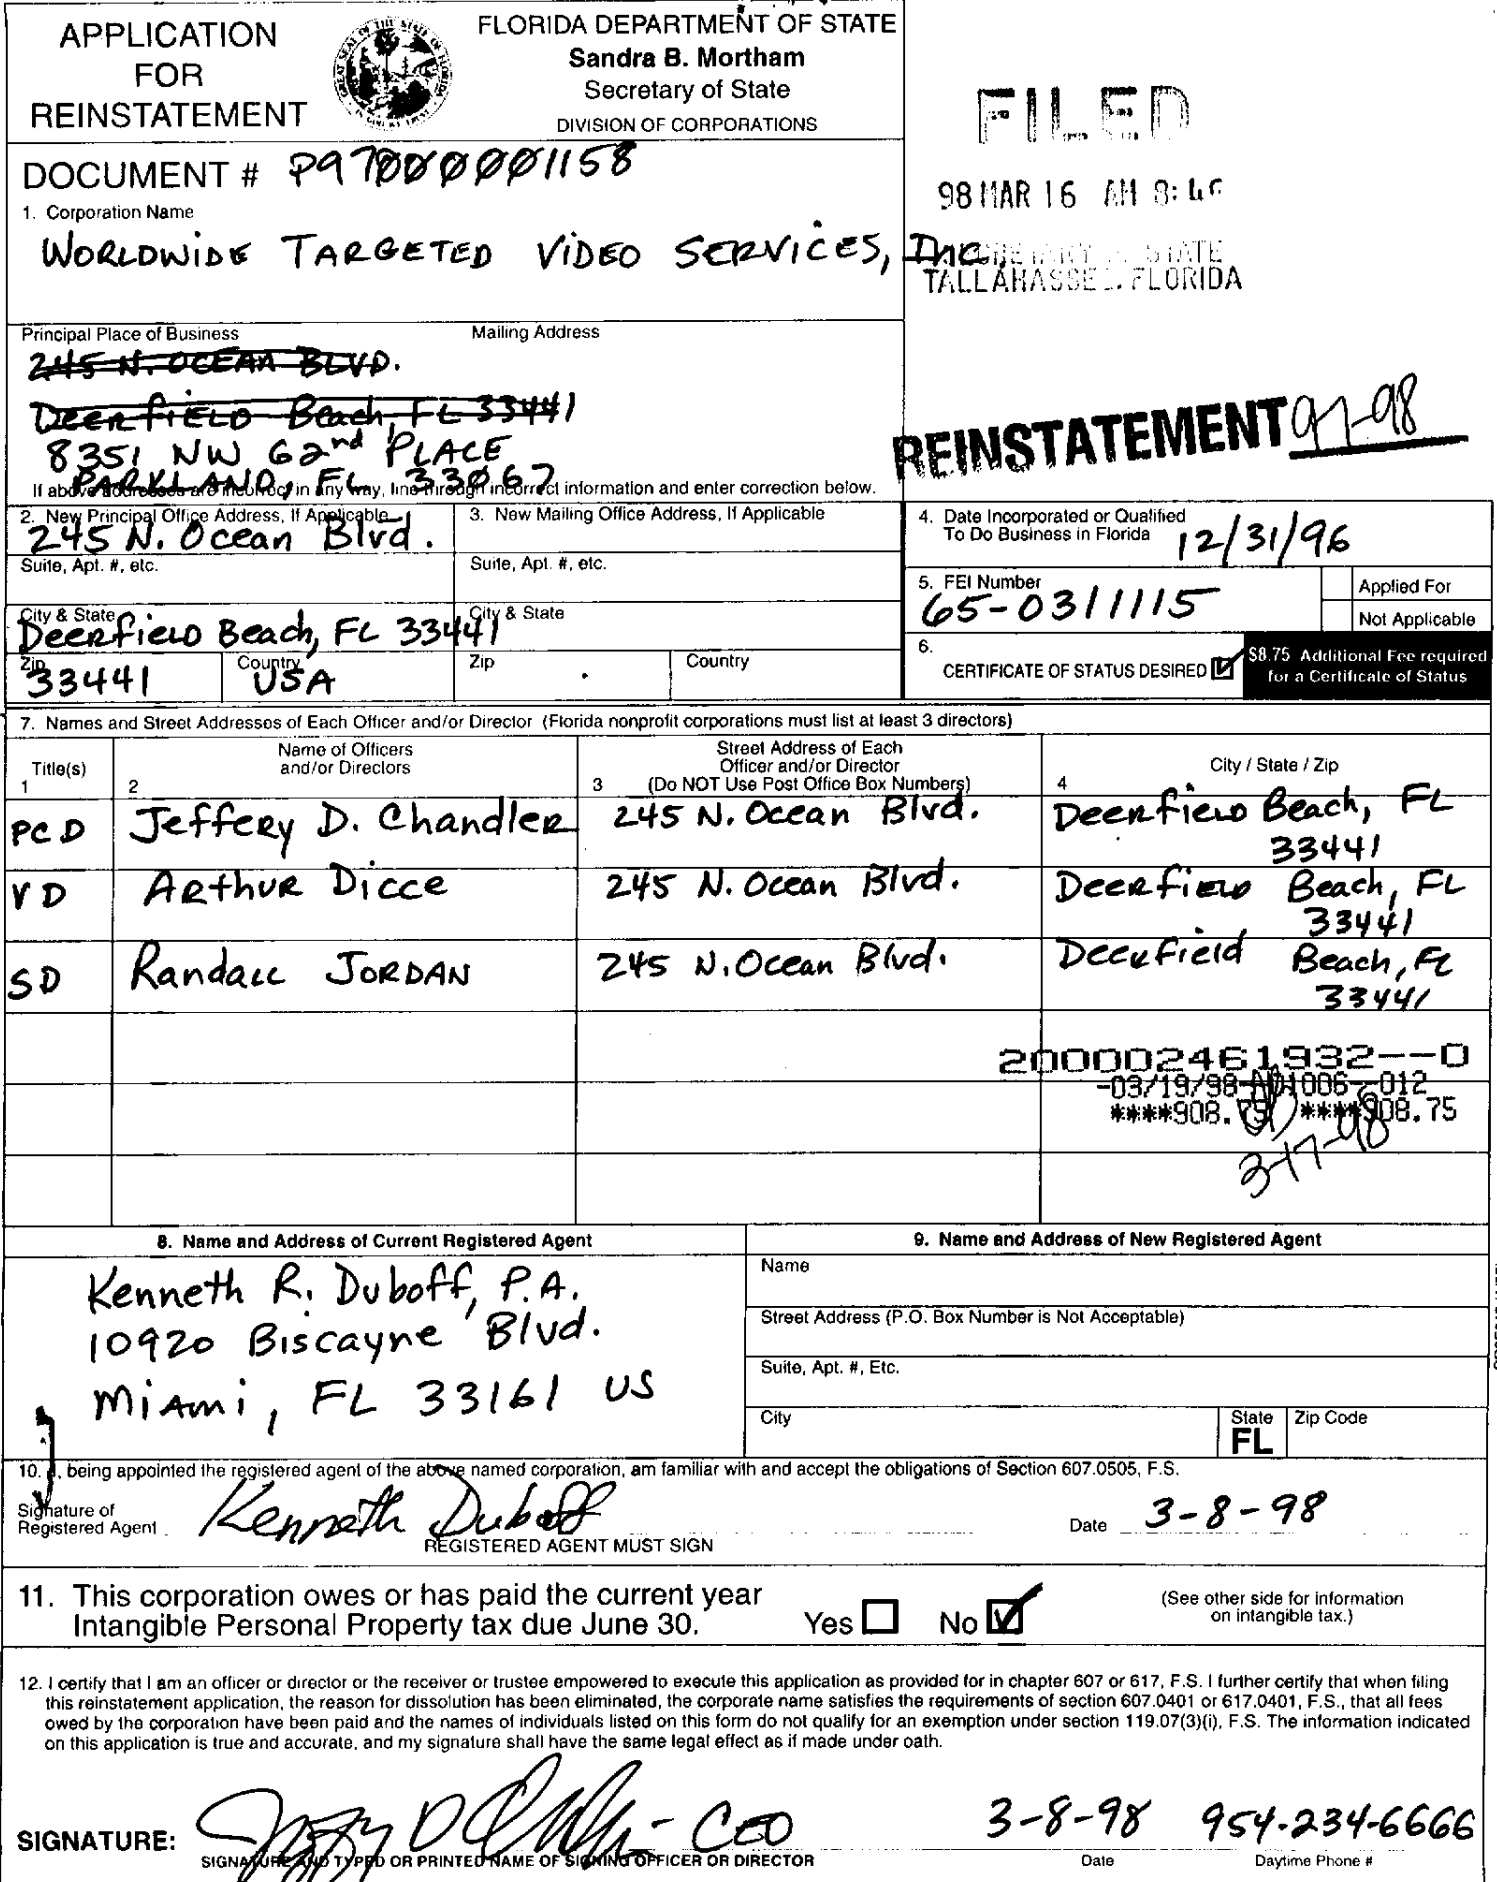 APPLICATION
FOR
REINSTATEMENT
FLORIDA DEPARTMENT OF STATE
Sandra B. Mortham
Secretary of State
DIVISION OF CORPORATIONS
FILED
98 MAR 16 AM 8:46
STATE
TALLAHASSEE, FLORIDA
DOCUMENT # P97000001158
1. Corporation Name
WORLDWIDE TARGETED VIDEO SERVICES, Inc.
Principal Place of Business
Mailing Address
245 N. OCEAN BLVD.
DEERFIELD Beach, FL 33441
8351 NW 62nd PLACE
PARKLAND, FL 33067
REINSTATEMENT 97-98
If above addresses are incorrect in any way, line through incorrect information and enter correction below.
2. New Principal Office Address, If Applicable
245 N. Ocean Blvd.
3. New Mailing Office Address, If Applicable
Suite, Apt. #, etc.
Suite, Apt. #, etc.
City & State
Deerfield Beach, FL 33441
City & State
Zip
33441
Country
USA
Zip
Country
4. Date Incorporated or Qualified
To Do Business in Florida 12/31/96
5. FEI Number
65-0311115
Applied For
Not Applicable
6.
CERTIFICATE OF STATUS DESIRED
$8.75 Additional Fee required
for a Certificate of Status
7. Names and Street Addresses of Each Officer and/or Director (Florida nonprofit corporations must list at least 3 directors)
Title(s)
1
Name of Officers
and/or Directors
2
Street Address of Each
Officer and/or Director
3 (Do NOT Use Post Office Box Numbers)
City / State / Zip
4
PCD Jeffery D. Chandler 245 N. Ocean Blvd. Deerfield Beach, FL
33441
VD Arthur Dicce 245 N. Ocean Blvd. Deerfield Beach, FL
33441
SD Randall JORDAN 245 N. Ocean Blvd. Deerfield Beach, FL
33441
200002461932--0
-03/19/98--01006--012
****908.75 ****908.75
3-17-98
8. Name and Address of Current Registered Agent
Kenneth R. Duboff, P.A.
10920 Biscayne Blvd.
Miami, FL 33161 US
9. Name and Address of New Registered Agent
Name
Street Address (P.O. Box Number is Not Acceptable)
Suite, Apt. #, Etc.
City
State
FL
Zip Code
10. I, being appointed the registered agent of the above named corporation, am familiar with and accept the obligations of Section 607.0505, F.S.
Signature of
Registered Agent Kenneth Duboff
REGISTERED AGENT MUST SIGN
Date 3-8-98
11. This corporation owes or has paid the current year
Intangible Personal Property tax due June 30.
Yes
No
(See other side for information
on intangible tax.)
12. I certify that I am an officer or director or the receiver or trustee empowered to execute this application as provided for in chapter 607 or 617, F.S. I further certify that when filing
this reinstatement application, the reason for dissolution has been eliminated, the corporate name satisfies the requirements of section 607.0401 or 617.0401, F.S., that all fees
owed by the corporation have been paid and the names of individuals listed on this form do not qualify for an exemption under section 119.07(3)(i), F.S. The information indicated
on this application is true and accurate, and my signature shall have the same legal effect as if made under oath.
SIGNATURE: - CEO 3-8-98 954-234-6666
SIGNATURE AND TYPED OR PRINTED NAME OF SIGNING OFFICER OR DIRECTOR
Date
Daytime Phone #